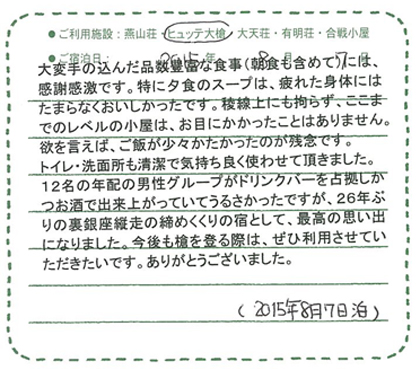 ●ご利用施設：燕山荘・ヒュッテ大槍・大天荘・有明荘・合戦小屋
●ご宿泊日： 2015年 8月 7日
大変手の込んだ品数豊富な食事（朝食も含めて）には、
感謝感激です。特に夕食のスープは、疲れた身体には
たまらなくおいしかったです。稜線上にも拘らず、ここま
でのレベルの小屋は、お目にかかったことはありません。
欲を言えば、ご飯が少々かたかったのが残念です。
トイレ・洗面所も清潔で気持ち良く使わせて頂きました。
12名の年配の男性グループがドリンクバーを占拠しか
つお酒で出来上がっていてうるさかったですが、26年ぶ
りの裏銀座縦走の締めくくりの宿として、最高の思い出
になりました。今後も槍を登る際は、ぜひ利用させてい
ただきたいです。ありがとうございました。
（2015年8月7日泊）